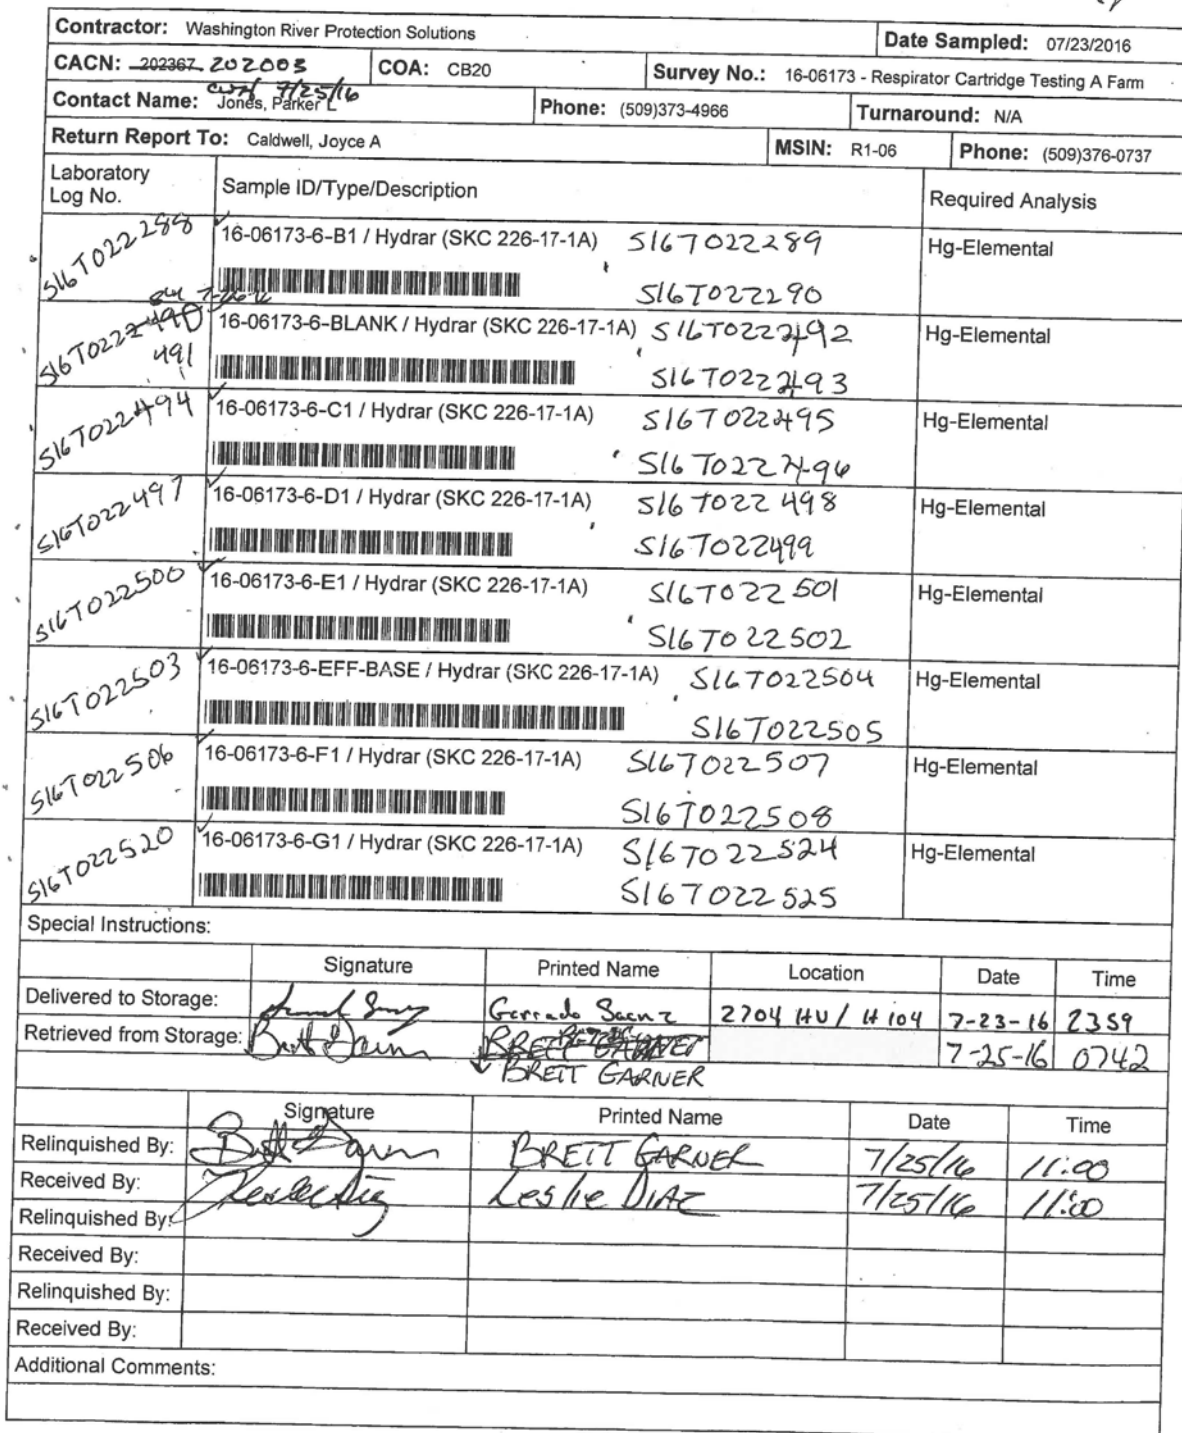 Contractor: Washington River Protection Solutions Date Sampled: 07/23/2016
CACN: 202367 202003 COA: CB20 Survey No.: 16-06173 - Respirator Cartridge Testing A Farm
7/25/16
Contact Name: Jones, Parker L Phone: (509)373-4966 Turnaround: N/A
Return Report To: Caldwell, Joyce A MSIN: R1-06 Phone: (509)376-0737
Laboratory Log No. Sample ID/Type/Description Required Analysis
S16T022288 16-06173-6-B1 / Hydrar (SKC 226-17-1A) S16T022289 Hg-Elemental
S16T022290
7-26-16
S16T022490 16-06173-6-BLANK / Hydrar (SKC 226-17-1A) S16T022492 Hg-Elemental
491 S16T022493
S16T022494 16-06173-6-C1 / Hydrar (SKC 226-17-1A) S16T022495 Hg-Elemental
S16T022496
S16T022497 16-06173-6-D1 / Hydrar (SKC 226-17-1A) S16T022498 Hg-Elemental
S16T022499
S16T022500 16-06173-6-E1 / Hydrar (SKC 226-17-1A) S16T022501 Hg-Elemental
S16T022502
S16T022503 16-06173-6-EFF-BASE / Hydrar (SKC 226-17-1A) S16T022504 Hg-Elemental
S16T022505
S16T022506 16-06173-6-F1 / Hydrar (SKC 226-17-1A) S16T022507 Hg-Elemental
S16T022508
S16T022520 16-06173-6-G1 / Hydrar (SKC 226-17-1A) S16T022524 Hg-Elemental
S16T022525
Special Instructions:
Signature Printed Name Location Date Time
Delivered to Storage: Gerrado Saenz 2704 HV / H104 7-23-16 2359
Retrieved from Storage: Brett Garner BRETT GARNER 7-25-16 0742
BRETT GARNER
Signature Printed Name Date Time
Relinquished By: Brett Garner BRETT GARNER 7/25/16 11:00
Received By: Leslie Diaz Leslie DIAZ 7/25/16 11:00
Relinquished By:
Received By:
Relinquished By:
Received By:
Additional Comments: